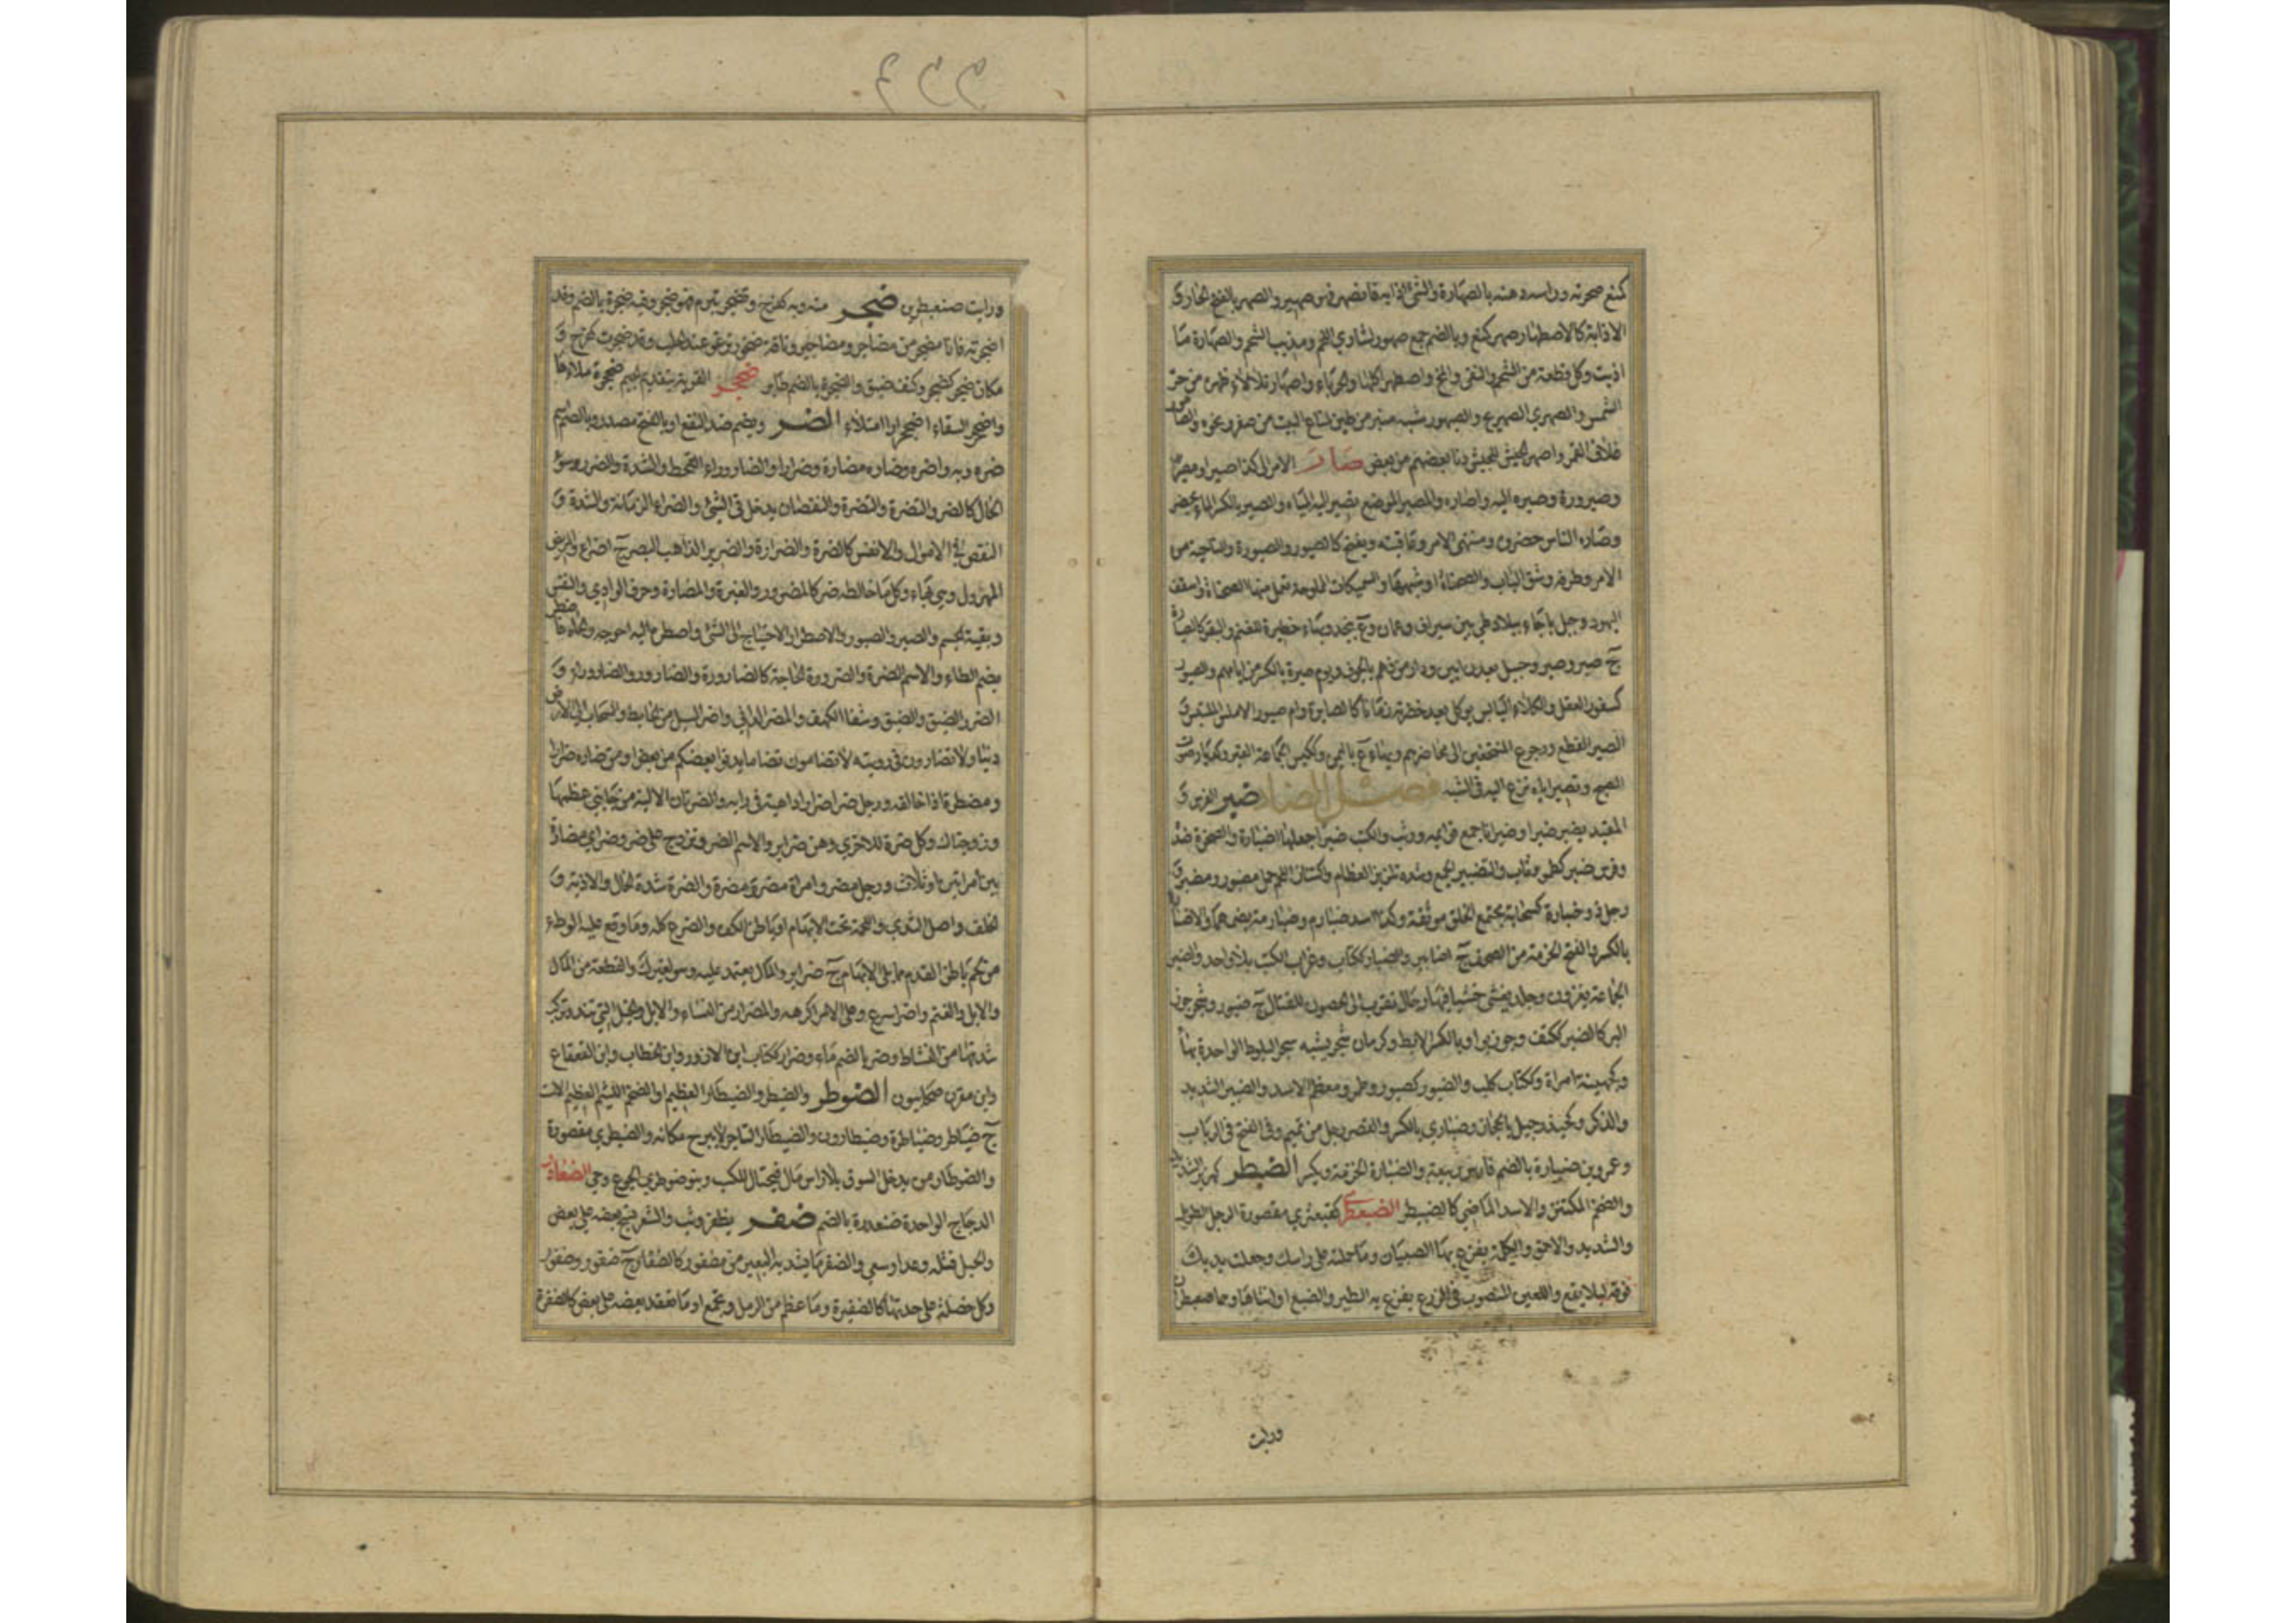 كنع صحرته وراسه دهنه بالصهارة والشئ اذابه فانصهر فهو صهير والصهر بالفتح الحار و
الاذابة كالاصطهار صهر كمنع وبالضم جمع صهور لشاوي اللحم ومذيب الشحم والصهارة ما
اذيب وكل قطعة من الشحم والنقي والمخ واصطهر اكلها والحرباء واصهار تلألأ ظهره من حر
الشمس والصهري الصهريج والصيهور شبه منبر من طين لمتاع البيت من صفر ونحوه
فلان القمر واصهر الجيش للجيش دنا بعضهم من بعض صار الامر الى كذا صيرا ومصيرا
وصيرورة وصيره اليه واصاره والمصير الموضع تصير اليه المياه والصير بالكسر الماء يحضر
وصاره الناس حضروه ومنتهى الامر وعاقبته ويفتح كالصيور والصيورة والناحية من
الامر وطرفه وشق الباب والصحناة او شبهها والسميكات المملوحة تعمل منها الصحناة واسقف
اليهود وجبل باجاء ببلاد طي بين سيراف وعمان وع بنجد وبهاء حظيرة للغنم والبقر كالصيارة
ج صير وصير وجبل بعدن ابين ودار من فهم بالجوف ويوم صيرة بالكسر من ايامهم والصيور
كسفود العقل والكلاء اليابس يوكل بعد خضرته زمانا كالصايرة وام صيور الامر الملتبس و
الصير القطع ورجوع المنتجعين الى محاضرهم وبهاء ع باليمن وككيس الجماعة القبر
وتصير اباه نزع اليه في الشبه فصل الضاد ضبر الفرس و
المقيد يضبر ضبرا وضبرانا جمع قوايمه ووثب والكتب ضبرا جعلها اضبارة والصخرة نضدها
وفرس ضبر كطمر وثاب والتضبير الجمع وشدة تلزيز العظام واكتناز اللحم جمل مضبور ومضبر و
رجل ذو ضبارة كسحابة مجتمع الخلق موثقه وكذا اسد ضبارم وضبارمة بضمهما والاضبارة
بالكسر والفتح الحزمة من الصحف ج اضابير والضبار ككتاب وغراب الكتب بلا واحد والضبر
الجماعة يغزون وجلد يغشى خشبا فيها رجال تقرب الى الحصون للقتال ج ضبور وشجر جوز
البر كالضبر ككتف وجوز بوا وبالكسر الابط وكرمان شجر يشبه شجر البلوط الواحدة بهاء
وكجهينة امراة وككتاب كلب والضبور كصبور وطمر ومعظم الاسد والضبير الشديد
والذكر وكحيدر جبل بالحجاز وضباري بالكسر والقصر رجل من تميم وفي الفتح في الرباب
وعمرو بن ضبارة بالضم فارس ربيعة والضبارة الحزمة ويكسر الضبطر كهزبر الشديد
والضخم المكتنز والاسد الماضي كالضبيطر الضبغطرى كقبعثري مقصورة الرجل الطويل
والشديد والاحمق وكلمة يفزع بها الصبيان وما حملته على راسك وجعلت يديك
فوقه ليلا يقع واللعين المنصوب في الزرع يفزع به الطير والضبع او انثاها وهما ضبغطران
ورايت
ورايت ضبغطرين ضجر منه وبه كفرح وتضجر تبرم فهو ضجر وفيه ضجرة بالضم وقد
اضجرته فانا مضجر من مضاجر ومضاجير وناقة ضجور ترغو عند الحلب وقد ضجرت كفرح و
مكان ضجر كشجر وكتف ضيق والضجرة بالضم طاير ضجحر القربة بتقديم الجيم ضجحرة ملاءها
واضجحر السقاء اضجحرارا امتلاء الضر ويضم ضد النفع او بالفتح مصدر وبالضم اسم
ضره وبه واضره وضاره مضارة وضرارا والضاروراء القحط والشدة والضرر وسوء
الحال كالضر والتضرة والتضرة والنقصان يدخل في الشئ والضراء الزمانة والشدة و
النقص في الاموال والانفس كالضرة والضرارة والضرير الذاهب البصر ج اضراء والمريض
المهزول وهي بهاء وكل ما خالطه ضر كالمضرور والغيرة والمضارة وحرف الوادي والنفس
وبقية الجسم والصبر والصبور والاضطرار الاحتياج الى الشئ واضطره اليه احوجه والجاه فاضطر
بضم الطاء والاسم الضرة والضرورة الحاجة كالضارورة والضارور والضاروراء و
الضرر الضيق والضيق وشفا الكهف والمضر الداني واضر السيل من الحايط والسحاب الى الارض
دنيا ولا تضارون في رؤيته لا تضامون تضاما يدنو بعضكم من بعض او من ضاره ضرارا
ومضطرة اذا خالفه ورجل ضر اضرار داهية في رايه والضرتان الالية من جانبي عظمها
وزوجتاك وكل ضرة للاخرى وهن ضراير والاسم الضر وتزوج على ضر وضر اي مضارة
بين امراتين او ثلاث ورجل مضر وامراة مضرة ومضرة والضرة شدة الحال والاذية و
الخلف واصل الثدي واللحمة تحت الابهام او باطن الكف والضرع كله وما وقع عليه الوطء
من لحم باطن القدم مما يلي الابهام ج ضراير والمال يعتمد عليه وهو لغيرك والقطعة من المال
والابل والغنم واضر اسرع وعلى الامر اكرهه والمضرار من النساء والابل والخيل التي تند وتركب
شدقها من النشاط وضر بالضم ماء وضرار ككتاب ابن الازور وابن الخطاب وابن القعقاع
وابن مقرن صحابيون الضوطر والضيطر والضيطار العظيم او الضخم اللئيم العظيم الاست
ج ضياطر وضياطرة وضيطارون والضيطار التاجر لا يبرح مكانه والضيطري مقصورة
والضوطار من يدخل السوق بلا راس مال فيحتال للكسب وبنو ضوطري الجوع وحي الضغادر
الدجاج الواحدة ضغدرة بالضم ضفر يضفر وثب والشعر نسج بعضه على بعض
والحبل فتله وعدا وسعي والضفر ما يشد به البعير من مضفور كالضفار ج ضفور وضفر
وكل خصلة على حدتها كالضفيرة وما عظم من الرمل وتجمع او ما تعقد بعضه على بعض كالضفرة